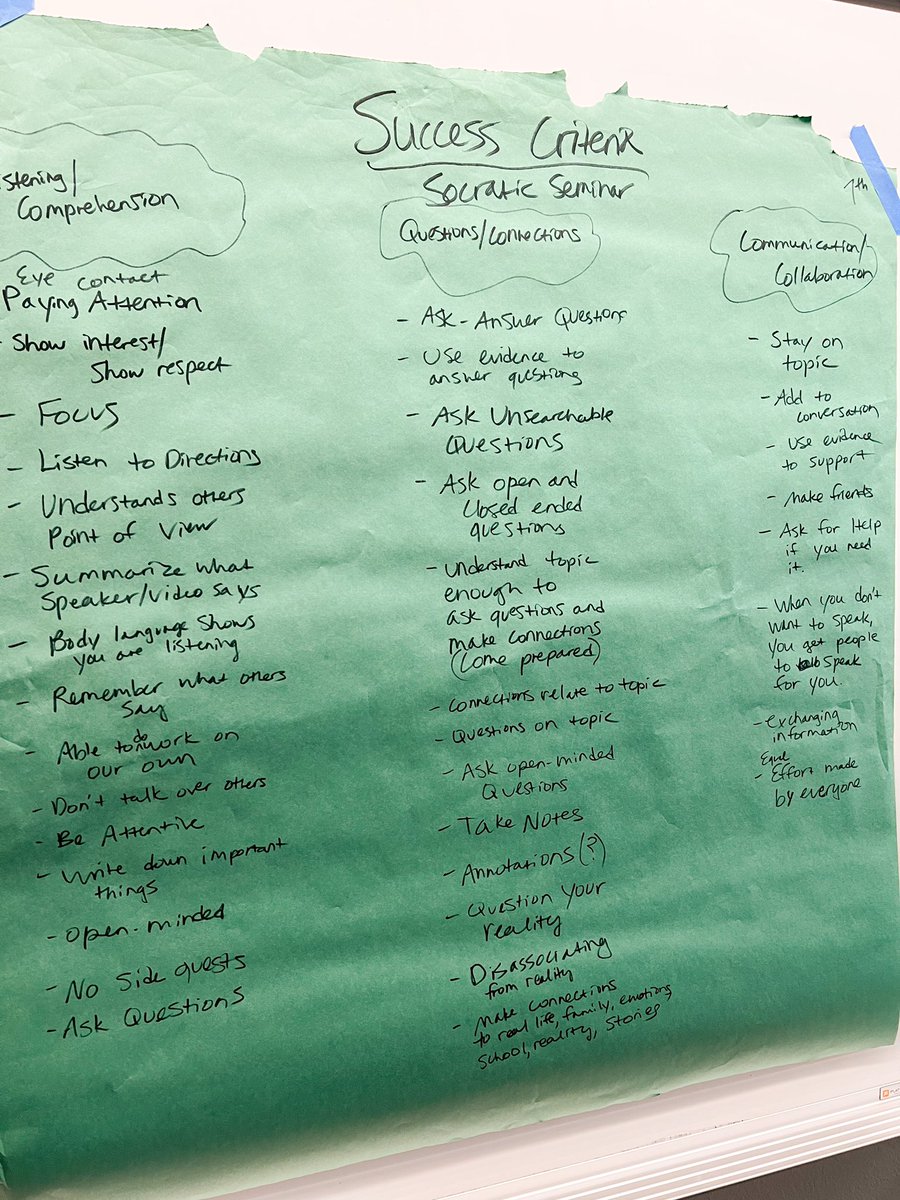 Success Criteria
Socratic Seminar
7th
stening/
Comprehension
Eye contact
Paying Attention
- Show interest/
Show respect
- Focus
- Listen to Directions
- Understands others
Point of View
- Summarize what
Speaker/video says
- Body language shows
you are listening
- Remember what others
say
- Able to do work on
our own
- Don't talk over others
- Be Attentive
- Write down important
things
- Open-minded
- No side quests
- Ask Questions
Questions/Connections
- Ask-Answer Questions
- Use evidence to
answer questions
- Ask Unsearchable
Questions
- Ask open and
closed ended
questions
- Understand topic
enough to
ask questions and
make connections
(Come prepared)
- Connections relate to topic
- Questions on topic
- Ask open-minded
Questions
- Take Notes
- Annotations (?)
- Question your
reality
- Disassociating
from reality
- Make connections
to real life, family, emotions,
school, reality, stories
Communication/
Collaboration
- Stay on
topic
- Add to
conversation
- Use evidence
to support
- Make friends
- Ask for Help
if you need
it.
- When you don't
want to speak,
you get people
to speak
for you.
- Exchanging
information
Equal
- Effort made
by everyone